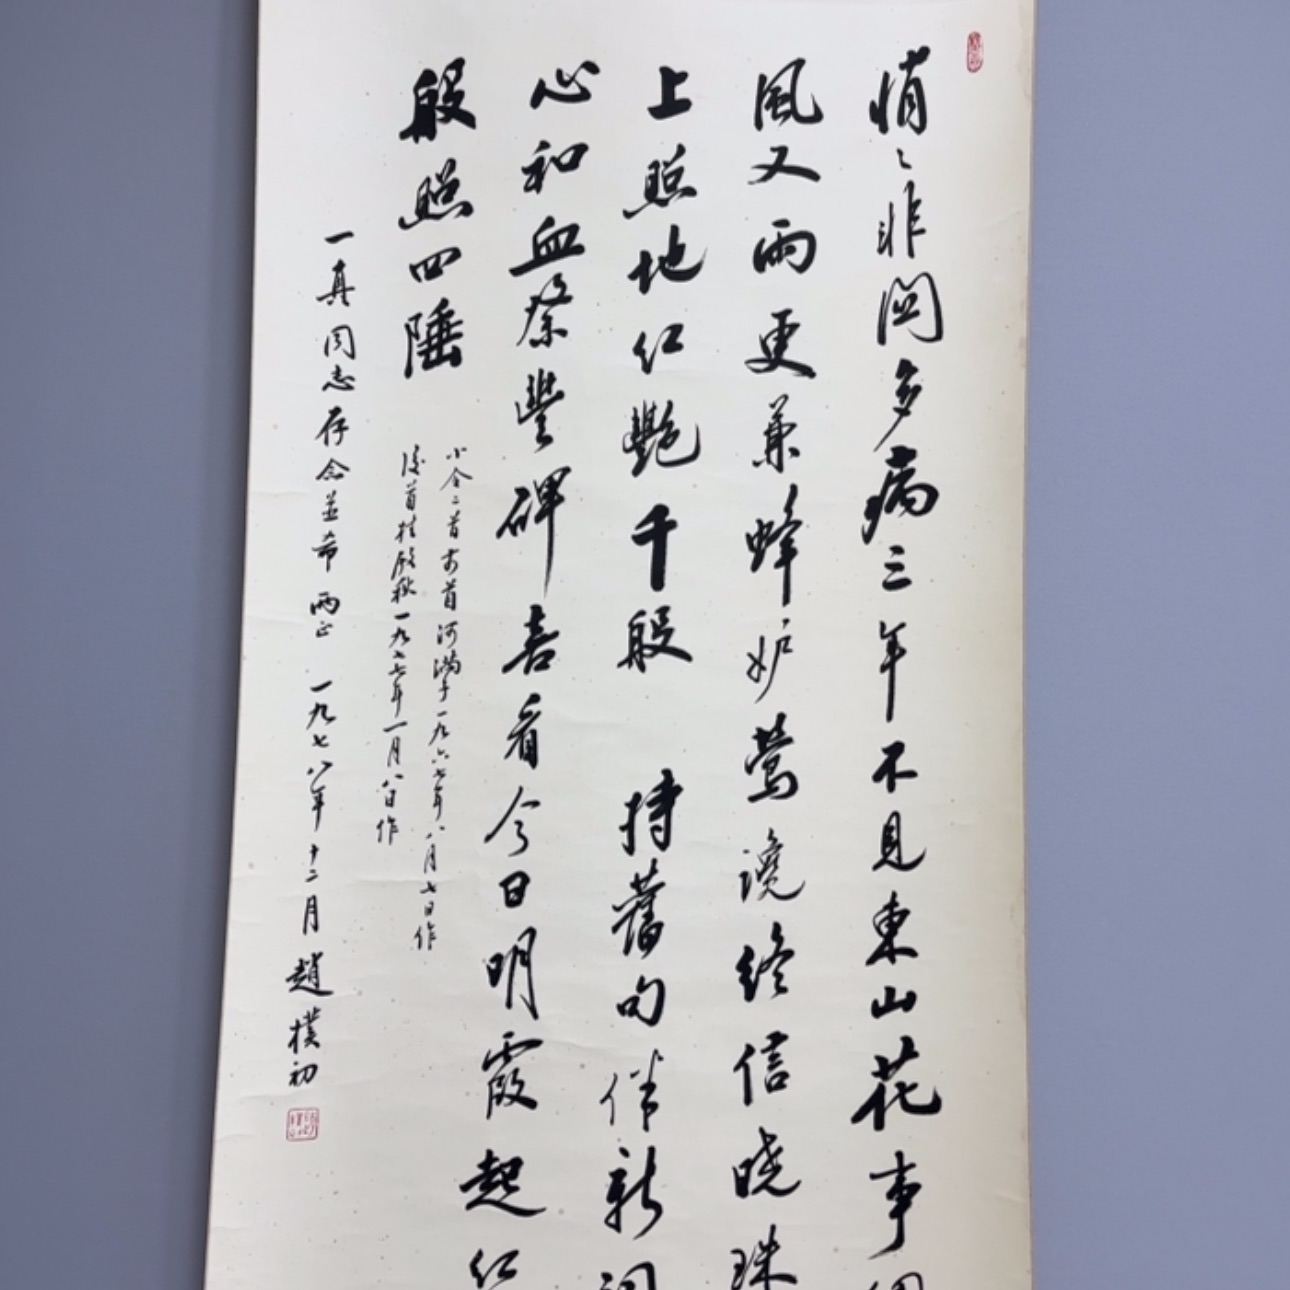 悄〻非関多病三年不見東山花事
風又雨更兼蜂妒鶯讒終信曉珠
上照地紅艷千般　持舊句伴新詞
心和血祭豐碑喜看今日明霞起紅
般照四陲
小令二首前首河滿子一九六七年八月七日作
後首桂殿秋一九七七年一月八日作
一真同志存念並希兩正　一九七八年十二月　趙樸初